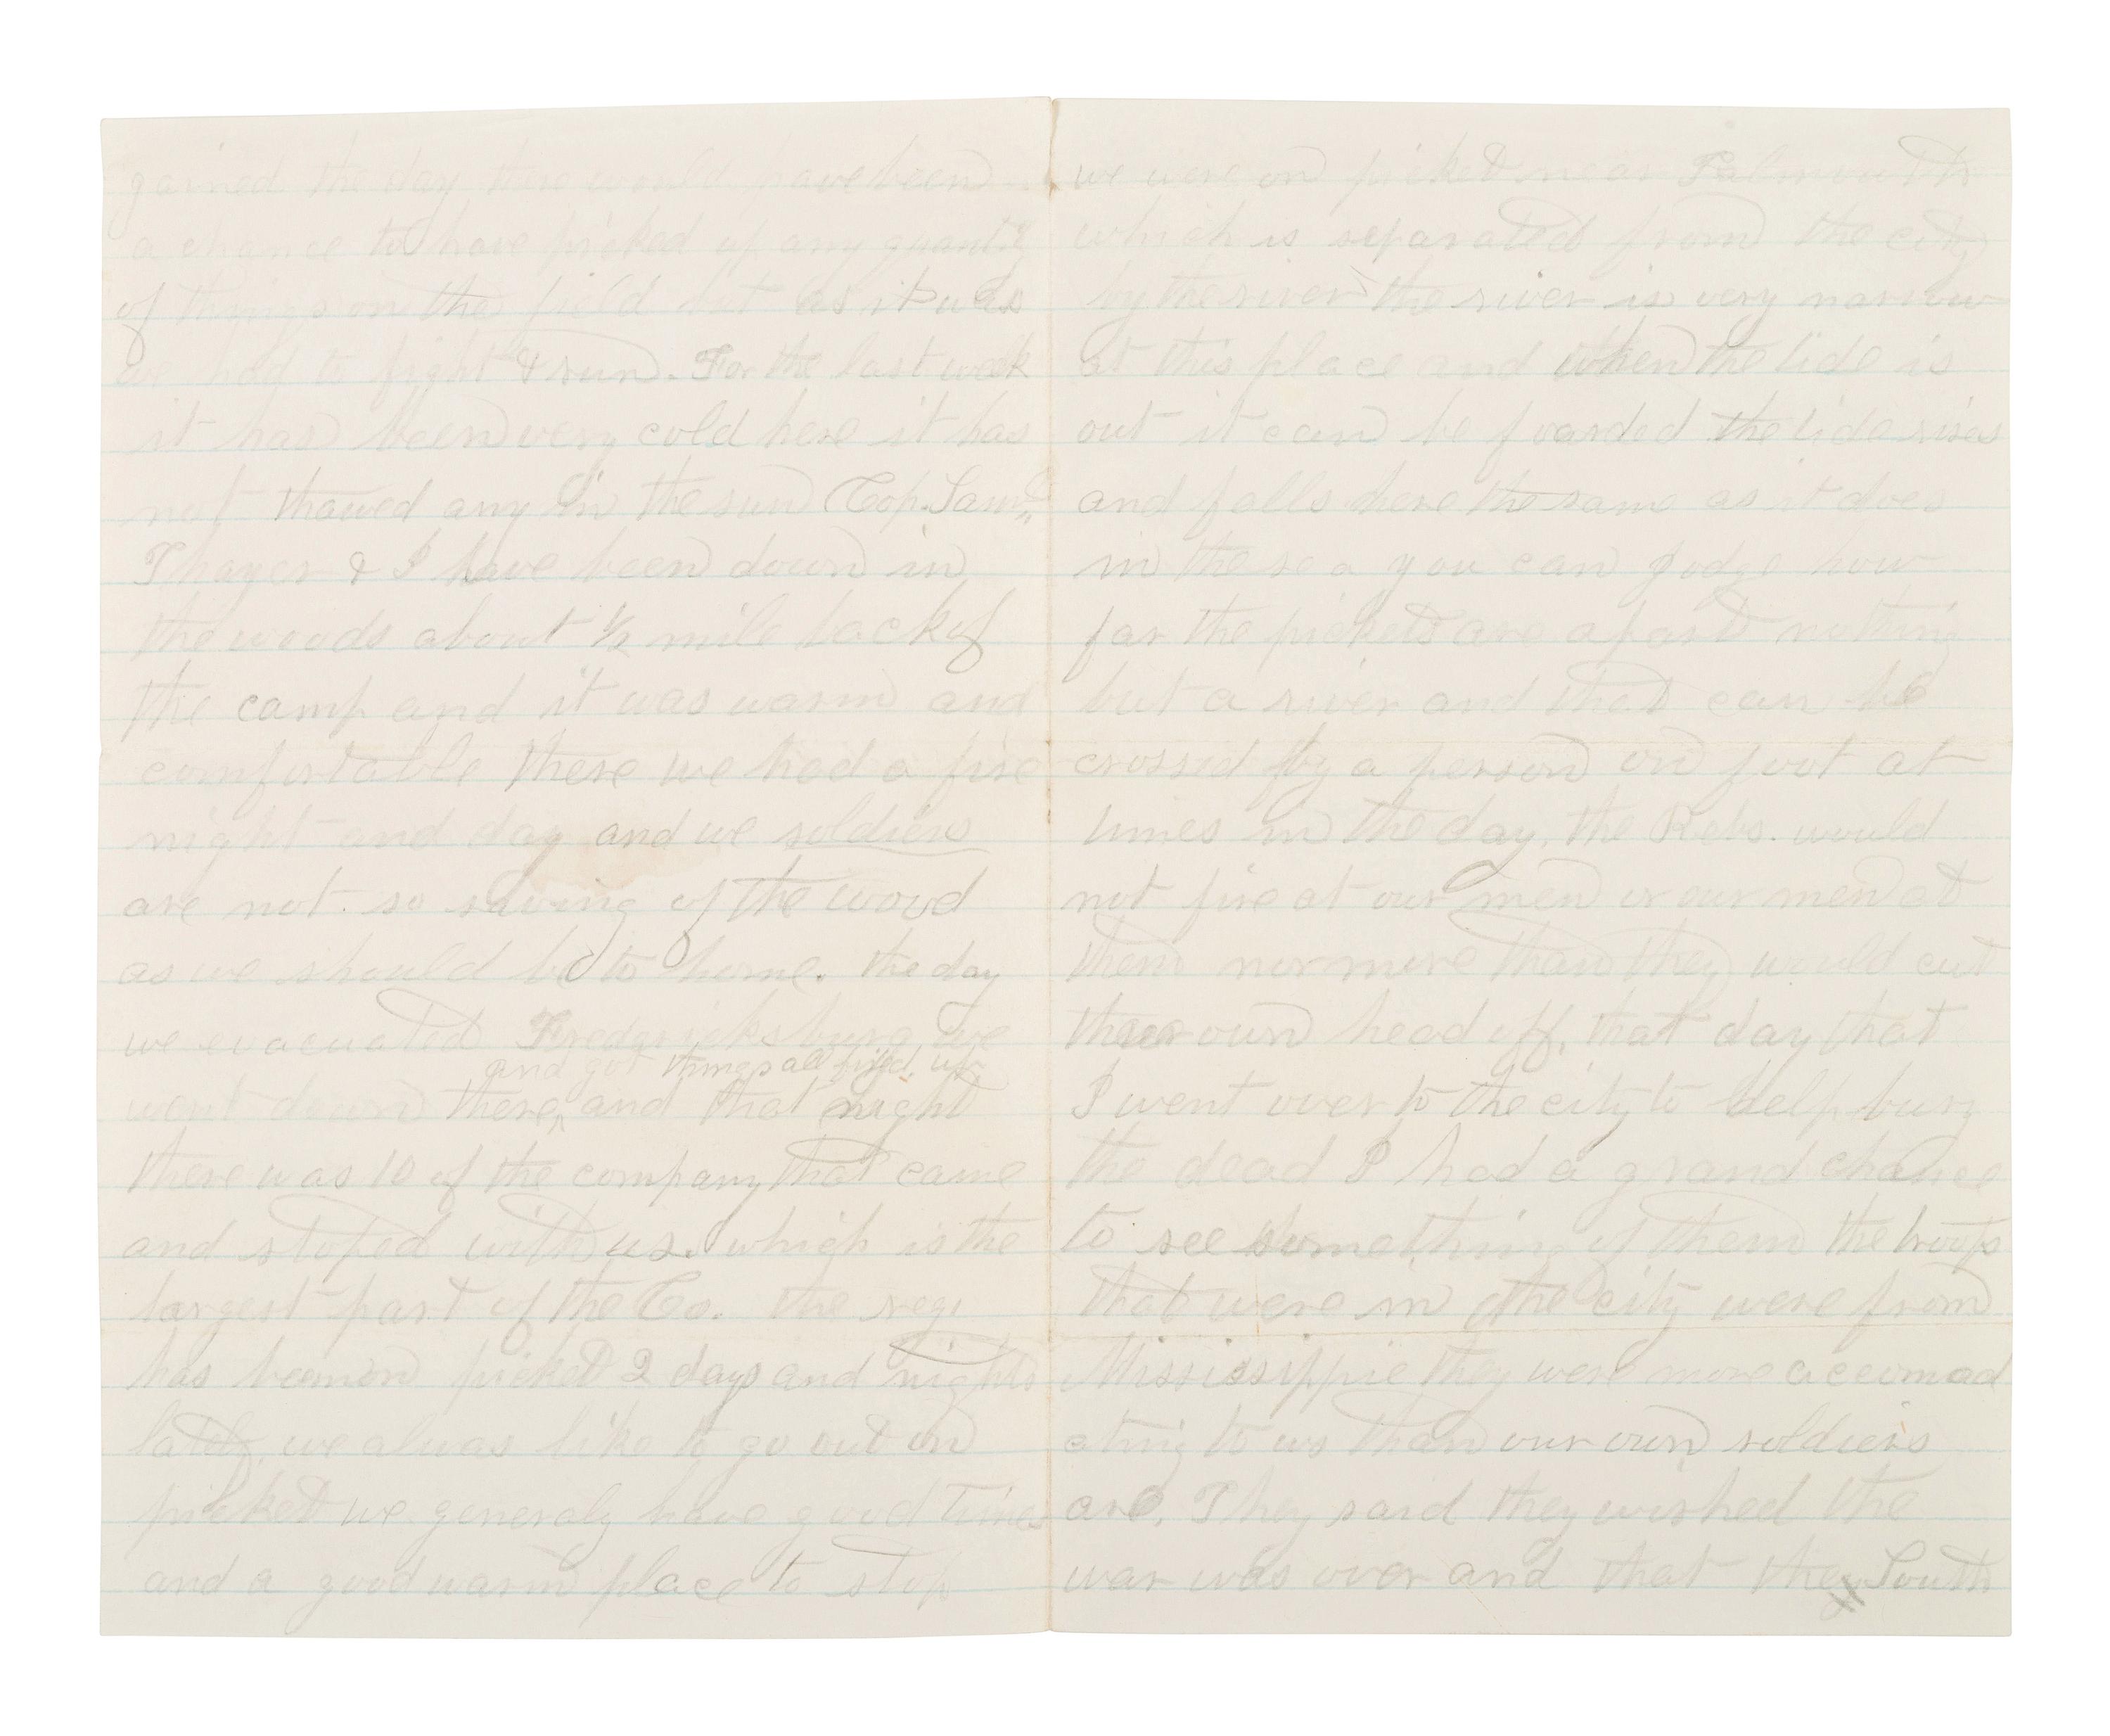 gained the day there would have been
a chance to have picked up any quantity
of things on the field but as it was
we had to fight & run. For the last week
it has been very cold here it has
not thawed any in the sun Cop. Saml.
Thayer & I have been down in
the woods about ½ mile back of
the camp and it was warm and
comfortable there we had a fire
night and day and we soldiers
are not so saving of the wood
as we should be to home. the day
we evacuated Fredericksburg we
and got things all fixed up
went down there, and that night
there was 10 of the company that came
and stoped with us. which is the
largest part of the Co. the regi
has been on picket 2 days and nights
lately, we alwas like to go out on
picket we generaly have good times
and a good warm place to stop
we were on picket near Falmouth
which is separated from the city
by the river the river is very narrow
at this place and when the tide is
out it can be foarded the tide rises
and falls here the same as it does
in the sea you can judge how
far the pickets are apart nothing
but a river and that can be
crossed by a person on foot at
times in the day, the Rebs. would
not fire at our men or our men at
them nor more than they would cut
their own head off, that day that
I went over to the city to help bury
the dead I had a grand chance
to see something of them the troops
that were in the city were from
Mississippie they were more accomad
ating to us than our own soldiers
are. They said they wished the
war was over and that they South